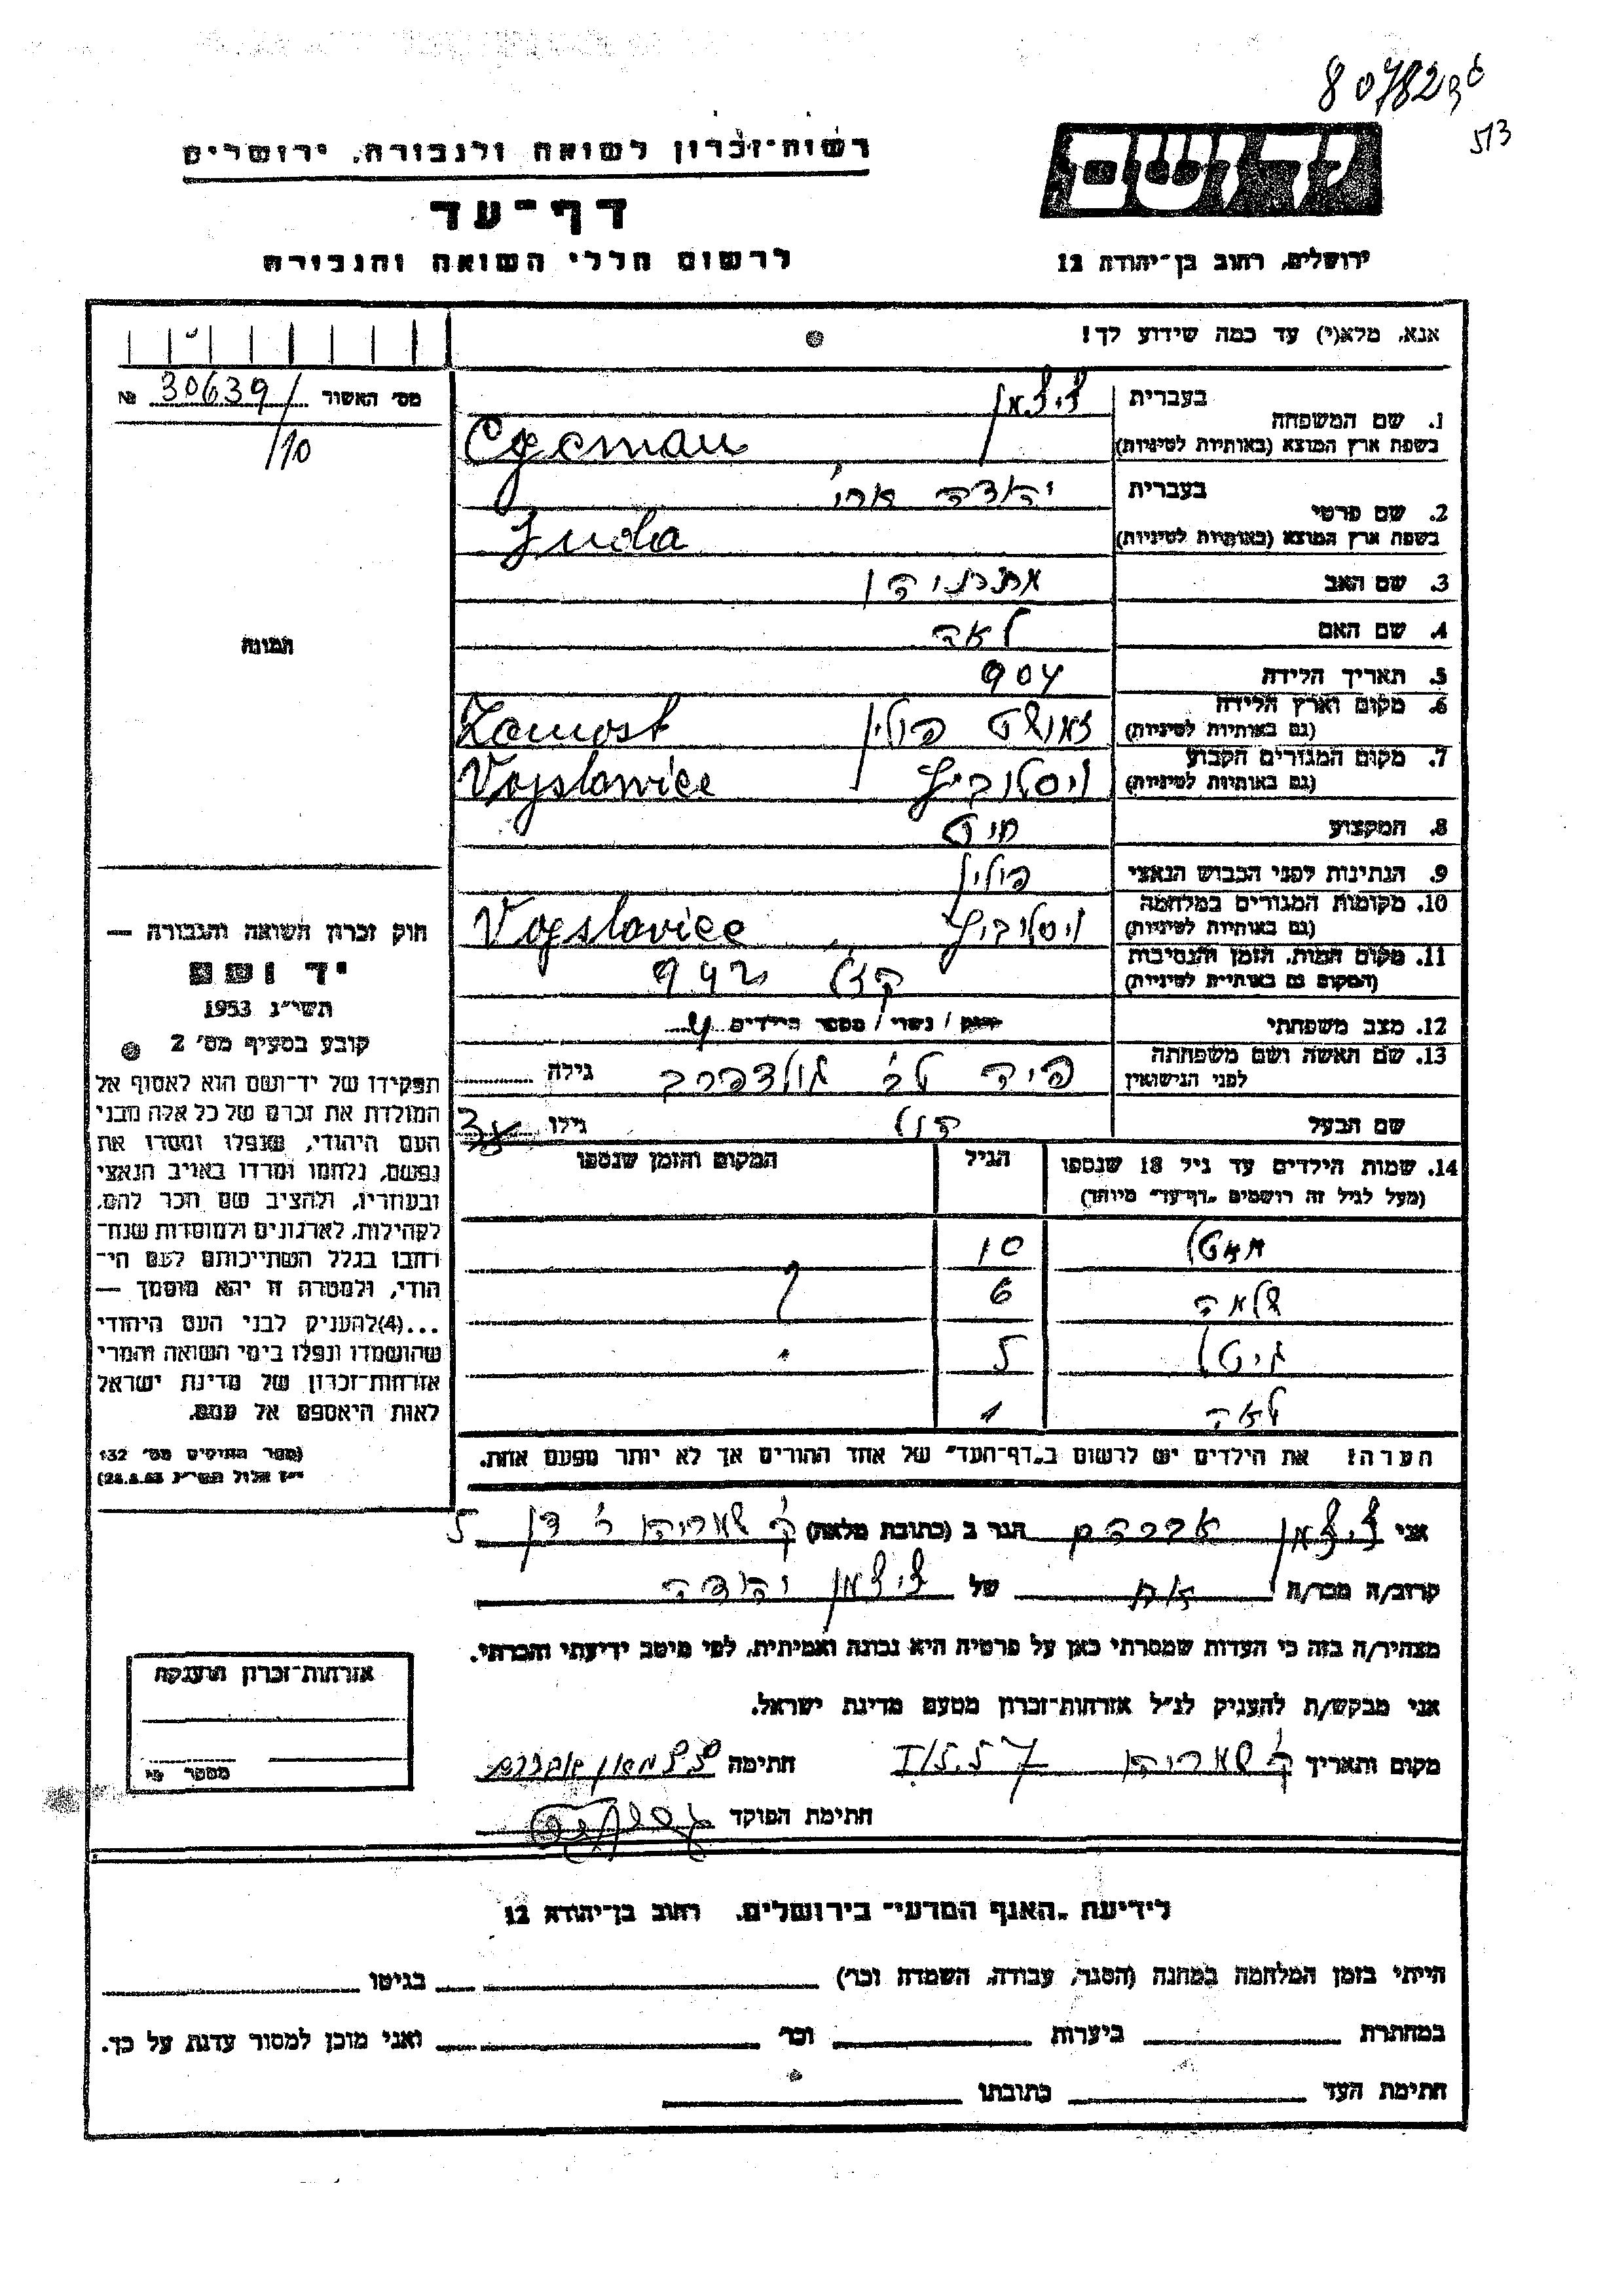 8078236
513
יד ושם
רשות־זכרון לשואה ולגבורה, ירושלים
דף־עד
לרשום חללי השואה והגבורה
ירושלים, רחוב בן־יהודה 12
אנא, מלא(י) עד כמה שידוע לך!
מס׳ האשור 30639 №
/10
1. שם המשפחה
בעברית ציצמן
בשפת ארץ המוצא (באותיות לטיניות) Cycman
2. שם פרטי
בעברית יהודה ארי
בשפת ארץ המוצא (באותיות לטיניות) Juda
3. שם האב
4. שם האם לאה
5. תאריך הלידה 904
6. מקום וארץ הלידה זמושט פולין Zamost
(גם באותיות לטיניות)
7. מקום המגורים הקבוע ויסלוביץ Vojslawice
(גם באותיות לטיניות)
8. המקצוע חיט
9. הנתינות לפני הכבוש הנאצי פולין
10. מקומות המגורים במלחמה ויסלוביץ Vojslavice
(גם באותיות לטיניות)
11. מקום המות, הזמן והנסיבות 942
(המקום גם באותיות לטיניות)
12. מצב משפחתי רווק / נשוי / מספר הילדים 4
13. שם האשה ושם משפחתה
לפני הנישואין גולדברב גילה
שם הבעל גילו
תמונה
14. שמות הילדים עד גיל 18 שנספו הגיל המקום והזמן שנספו
(מעל לגיל זה רושמים „דף־עד" מיוחד)
10
שלמה 6
גיטל 5
לאה 1
הערה! את הילדים יש לרשום ב„דף־העד" של אחד ההורים אך לא יותר מפעם אחת.
חוק זכרון השואה והגבורה —
יד ושם
תשי״ג 1953
קובע בסעיף מס׳ 2
תפקידו של יד־ושם הוא לאסוף אל
המולדת את זכרם של כל אלה מבני
העם היהודי, שנפלו ומסרו את
נפשם, נלחמו ומרדו באויב הנאצי
ובעוזריו, ולהציב שם וזכר להם,
לקהילות, לארגונים ולמוסדות שנח־
רבו בגלל השתייכותם לעם הי־
הודי, ולמטרה זו יהא מוסמך —
...(4)להעניק לבני העם היהודי
שהושמדו ונפלו בימי השואה והמרי
אזרחות־זכרון של מדינת ישראל
לאות היאספם אל עמם.
(ספר החוקים מס׳ 132
י״ז אלול תשי״ג 28.8.53)
אני ציצמן אברהם הגר ב (כתובת מלאה) ק׳ שמריהו ר׳ דן 5
קרוב/ה מכר/ה אח של ציצמן יהודה
מצהיר/ה בזה כי העדות שמסרתי כאן על פרטיה היא נכונה ואמיתית, לפי מיטב ידיעתי והכרתי.
אני מבקש/ת להעניק לנ״ל אזרחות־זכרון מטעם מדינת ישראל.
מקום ותאריך ק׳ שמריהו חתימה ציצמאן אברהם
חתימת הפוקד
אזרחות־זכרון הוענקה
מספר כי
לידיעת „האגף המדעי״ בירושלים, רחוב בן־יהודה 12
הייתי בזמן המלחמה במחנה (הסגר, עבודה, השמדה וכו׳) בגיטו
במחתרת ביערות וכו׳ ואני מוכן למסור עדות על כך.
חתימת העד כתובתו